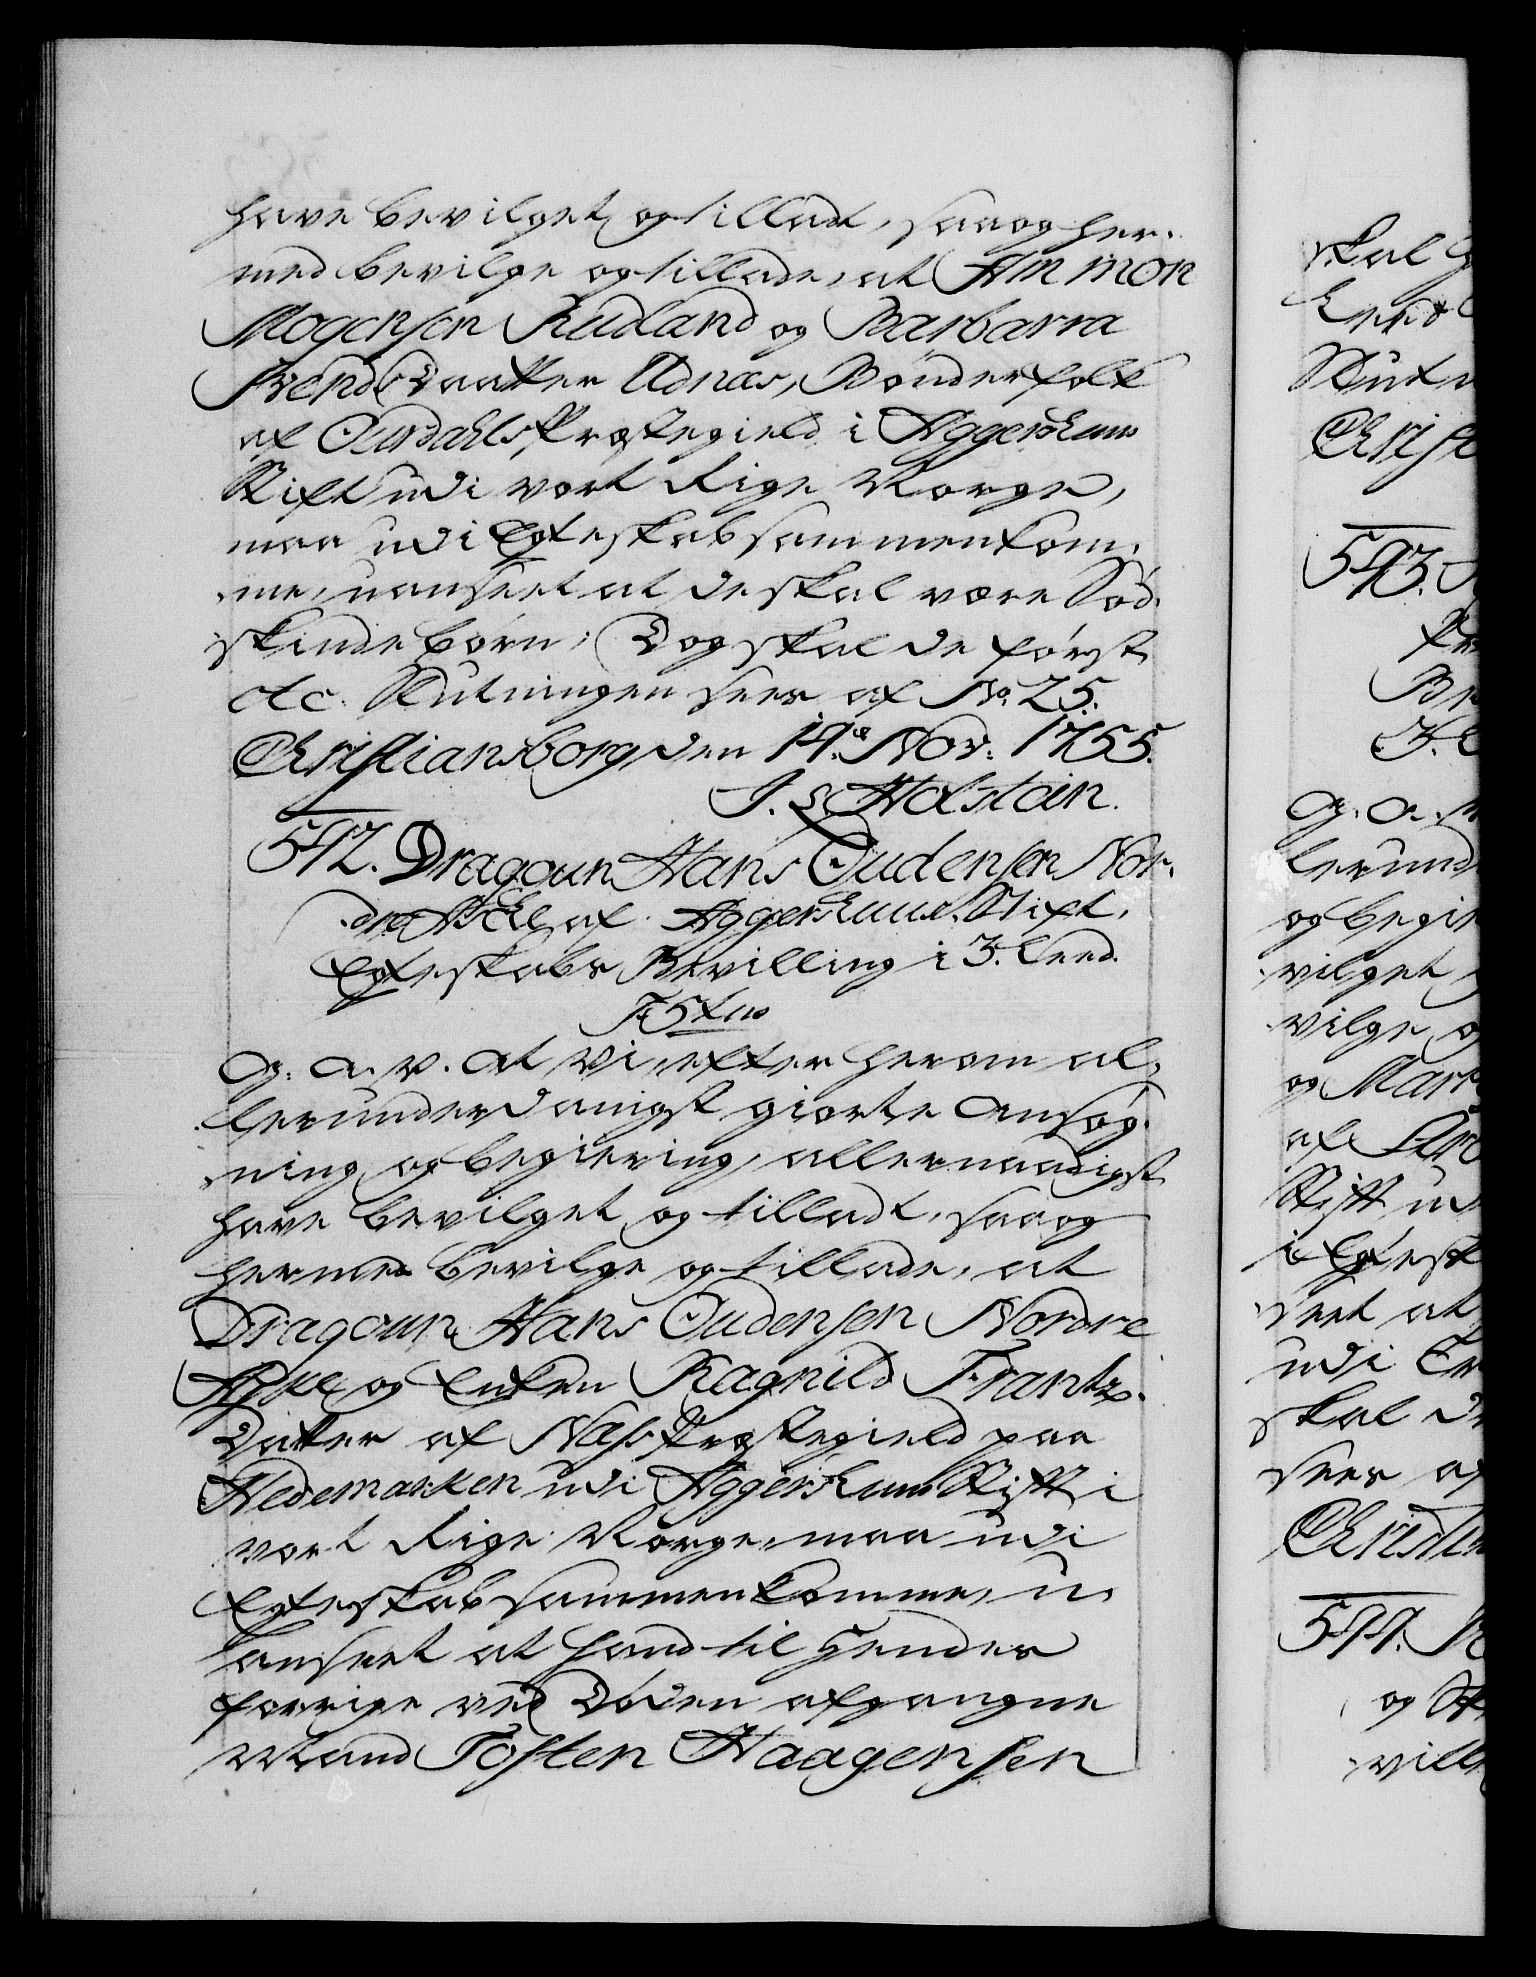 have bevilget og tilladt, saa og her-
med bevilge og tillade, at Ammon
Mogensen Rudland og Barbarra
Svends Daatter Udnæs, Bønderfolk
af Ourdahls Præstegield i Aggershuus
Stift udi vort Rige Norge,
maa udi Egteskab sammenkom-
me, uanseet at de skal være Sød-
skindebørn; Dog skal de først
etc. Slutningen sees af No. 25.
Christiansborg den 14de Nov: 1755.
J. L. Holstein.
542. Dragoun Hans Oudensen Nor-
dre af Aggershuus Stift,
Egteskabs Bevilling i 3. Leed.
G: A. V. At Vi, efter herom al-
lerunderdanigst giorte Ansøg-
ning og begiering, allernaadigst
have bevilget og tilladt, saa og
hermed bevilge og tillade, at
Dragoun Hans Oudensen Nordre
og Enken Ragnild Frantz-
Datter af Næss Præstegield paa
Hedemarken udi Aggershuus Stift i
vort Rige Norge, maa udi
Egteskab sammenkomme, u-
anseet at hand til hendes
forrige ved Døden afgangne
Mand Tosten Haagensen
skal
Slut
543.
G. A.
lerund
og begie
vilget
vilge
og
af
Stift ud
i Egtesk
seet at
udi
skal
sees af
544.
og
vill